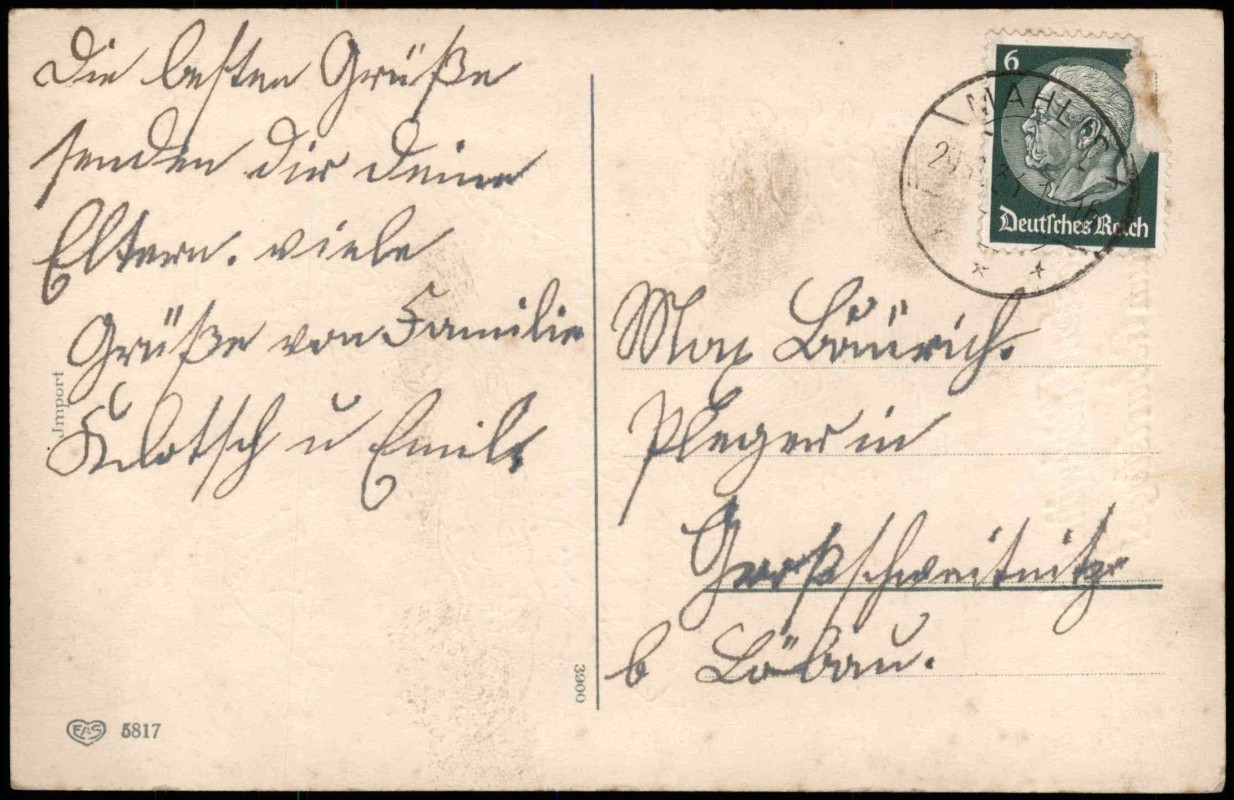 Die besten Grüße
senden dir deine
Eltern. viele
Grüße von Familie
Klotsch u Emil
Import
EAS 5817
3900
6
Deutsches Reich
Max
in
Großschweitnitz
b Löbau.